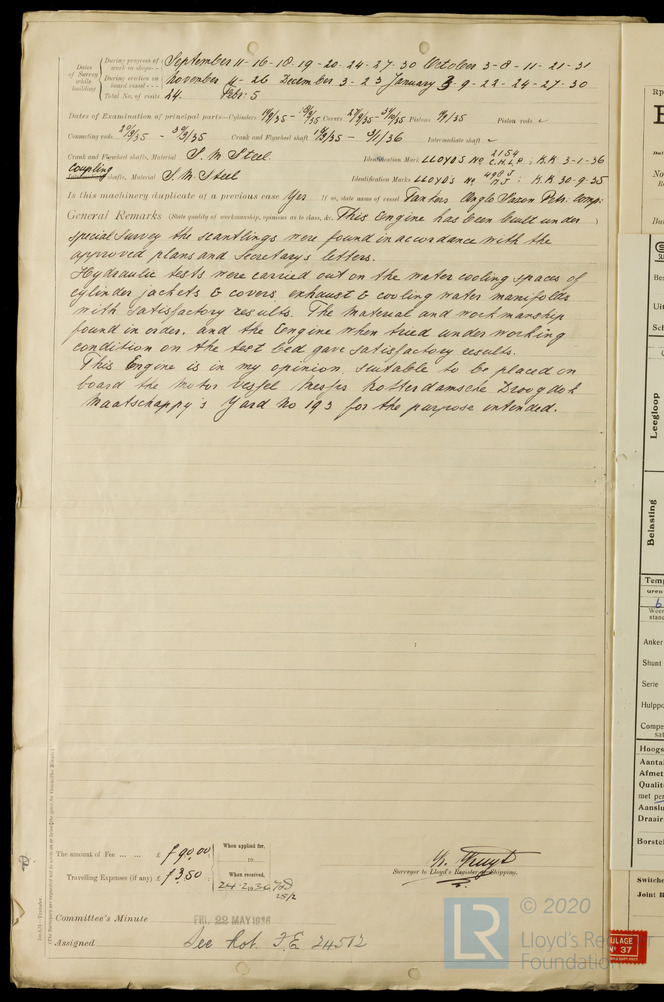 Dates of Survey while building
During progress of work in shops - - September 11-16-18-19-20-24-27-30 October 3-8-11-21-31
During erection on board vessel - - - November 11-26 December 3-23 January 3-9-22-24-27-30
Total No. of visits 24. Febr: 5
Dates of Examination of principal parts—Cylinders Covers Pistons Piston rods
Connecting rods Crank and Flywheel shaft 3/1/36 Intermediate shaft
Crank and Flywheel shafts, Material S. M. Steel Identification Mark LLOYD'S No 2154 C.H.L.P. ; K.K. 3-1-36
Coupling shafts, Material S. M. Steel Identification Marks LLOYD'S No ; K.K. 30-9-35
Is this machinery duplicate of a previous case Yes If so, state name of vessel Tankers Anglo Saxon Petr. Comp:
General Remarks (State quality of workmanship, opinions as to class, &c. This Engine has been built under )
special survey the scantlings were found in accordance with the
approved plans and Secretary's letters.
Hydraulic tests were carried out on the water cooling spaces of
cylinder jackets & covers, exhaust & cooling water manifolds
with satisfactory results. The material and workmanship
found in order, and the Engine when tried under working
condition on the test bed gave satisfactory results.
This Engine is in my opinion, suitable to be placed on
board the Motor Vessel Messrs Rotterdamsche Droogdok
Maatschappy's Yard No 193 for the purpose intended.
The amount of Fee ... ... £ f 90.00
When applied for,
Travelling Expenses (if any) £ f 3.50
When received,
24-2-1936
25/2
Surveyor to Lloyd's Register of Shipping.
Committee's Minute FRI. 22 MAY 1936
Assigned See Rot. F.E. 24512
© 2020
Lloyd's Register
Foundation
LR
Leegloop
Belasting
Temp
uren
Anker
Shunt
Serie
Hulppo
Hoogs
Aanta
Afmet
Qualit
met per
Aanslu
Draair
Borstel
Switche
Joint B
No 37